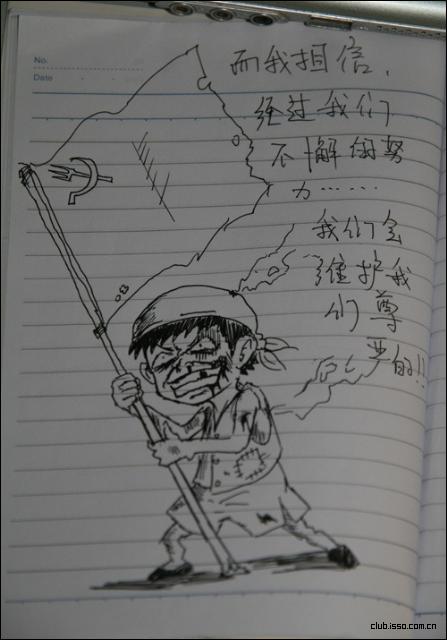 No.
Date
而我相信，
经过我们
不懈的努
力……
我们会
维护我
们尊
严的!!
club.isso.com.cn